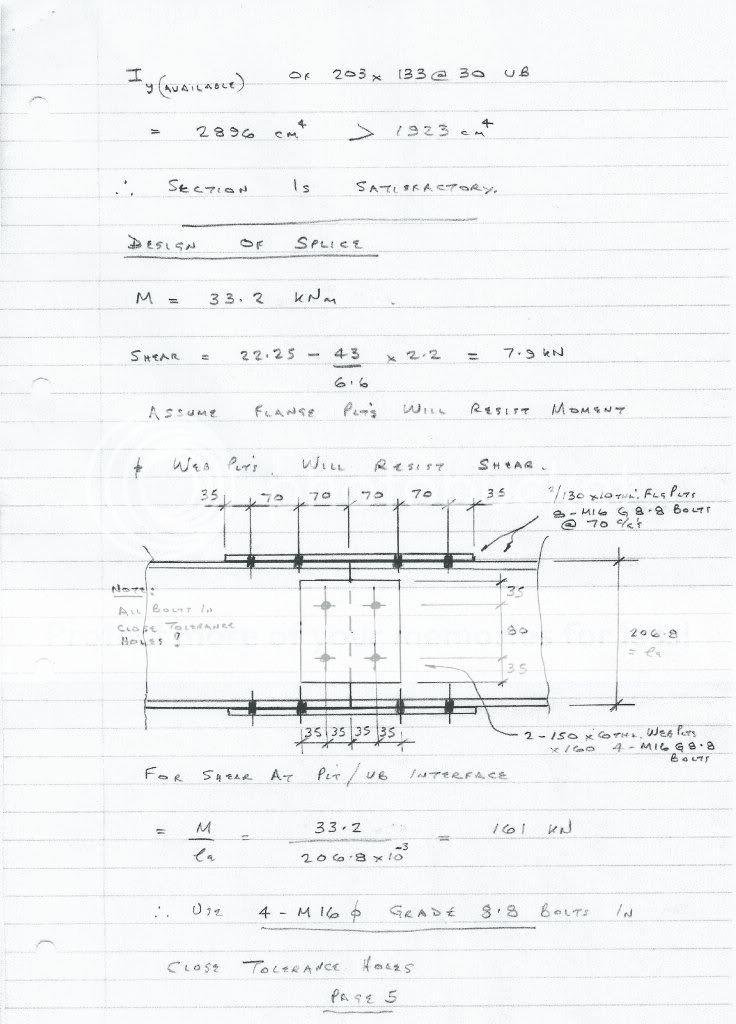 Iy(AVAILABLE) OF 203 x 133 @ 30 UB
= 2896 cm⁴ > 1923 cm⁴
∴ SECTION IS SATISFACTORY.
DESIGN OF SPLICE
M = 33.2 KNm
SHEAR = 22.25 - 43/6.6 x 2.2 = 7.9 KN
ASSUME FLANGE PLT'S WILL RESIST MOMENT
& WEB PLT'S. WILL RESIST SHEAR.
35 70 70 70 70 35
2/130 x 10 THK. FLG PLTS
8 - M16 G 8.8 BOLTS
@ 70 c/c's
NOTE:
ALL BOLTS IN
CLOSE TOLERANCE
HOLES !
35
80
35
206.8
= la
35 35 35 35
2 - 150 x 6 THK. WEB PLTS
x 160 4 - M16 G 8.8
BOLTS
FOR SHEAR AT PLT / UB INTERFACE
= M/la = 33.2/206.8 x 10⁻³ = 161 KN
∴ USE 4 - M16 ϕ GRADE 8.8 BOLTS IN
CLOSE TOLERANCE HOLES
PAGE 5